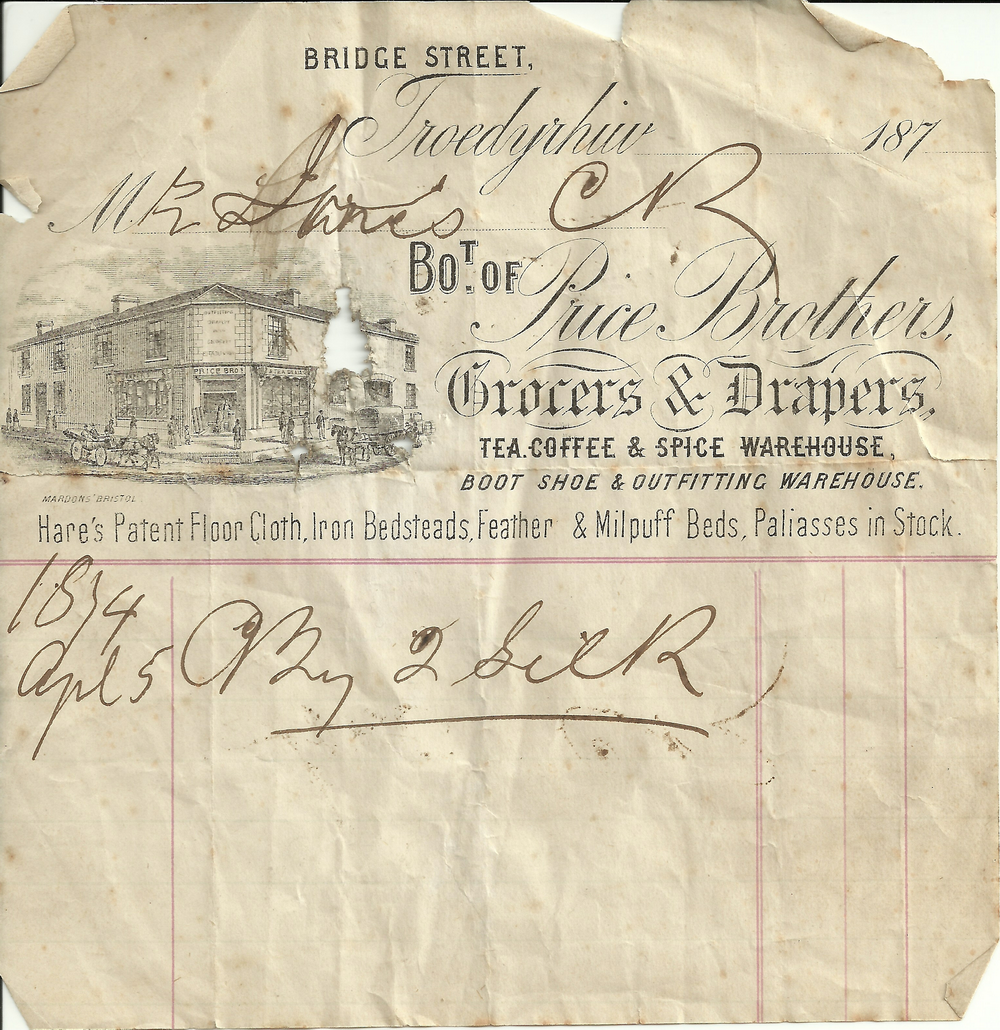 BRIDGE STREET,
Troedyrhiw 187
Mr Jones
BOT. OF Price Brothers,
PRICE BROS
Grocers & Drapers,
TEA. COFFEE & SPICE WAREHOUSE,
BOOT SHOE & OUTFITTING WAREHOUSE.
MARDONS' BRISTOL
Hare's Patent Floor Cloth, Iron Bedsteads, Feather & Milpuff Beds, Paliasses in Stock.
1874
Apl 5 By 2 Silk